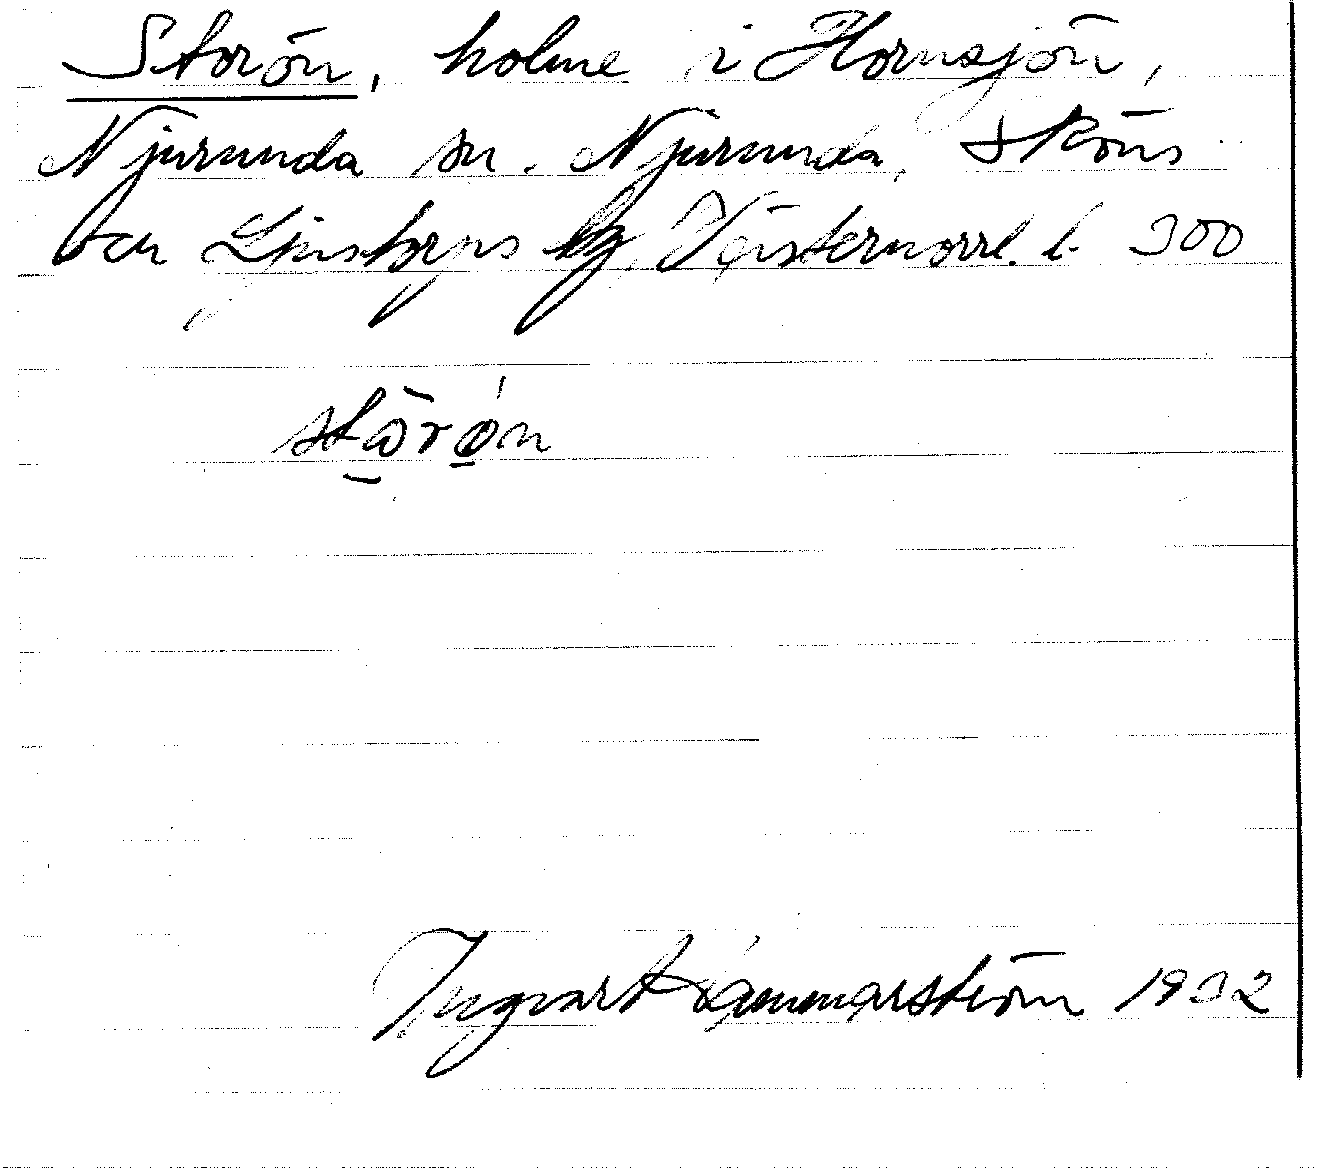 Storön, holme i Hornsjön,
Njurunda sn. Njurunda, Sköns
och Ljustorps tg, Västernorrl. l. 300
stōrǿn
Ingvart Hammarström 1932